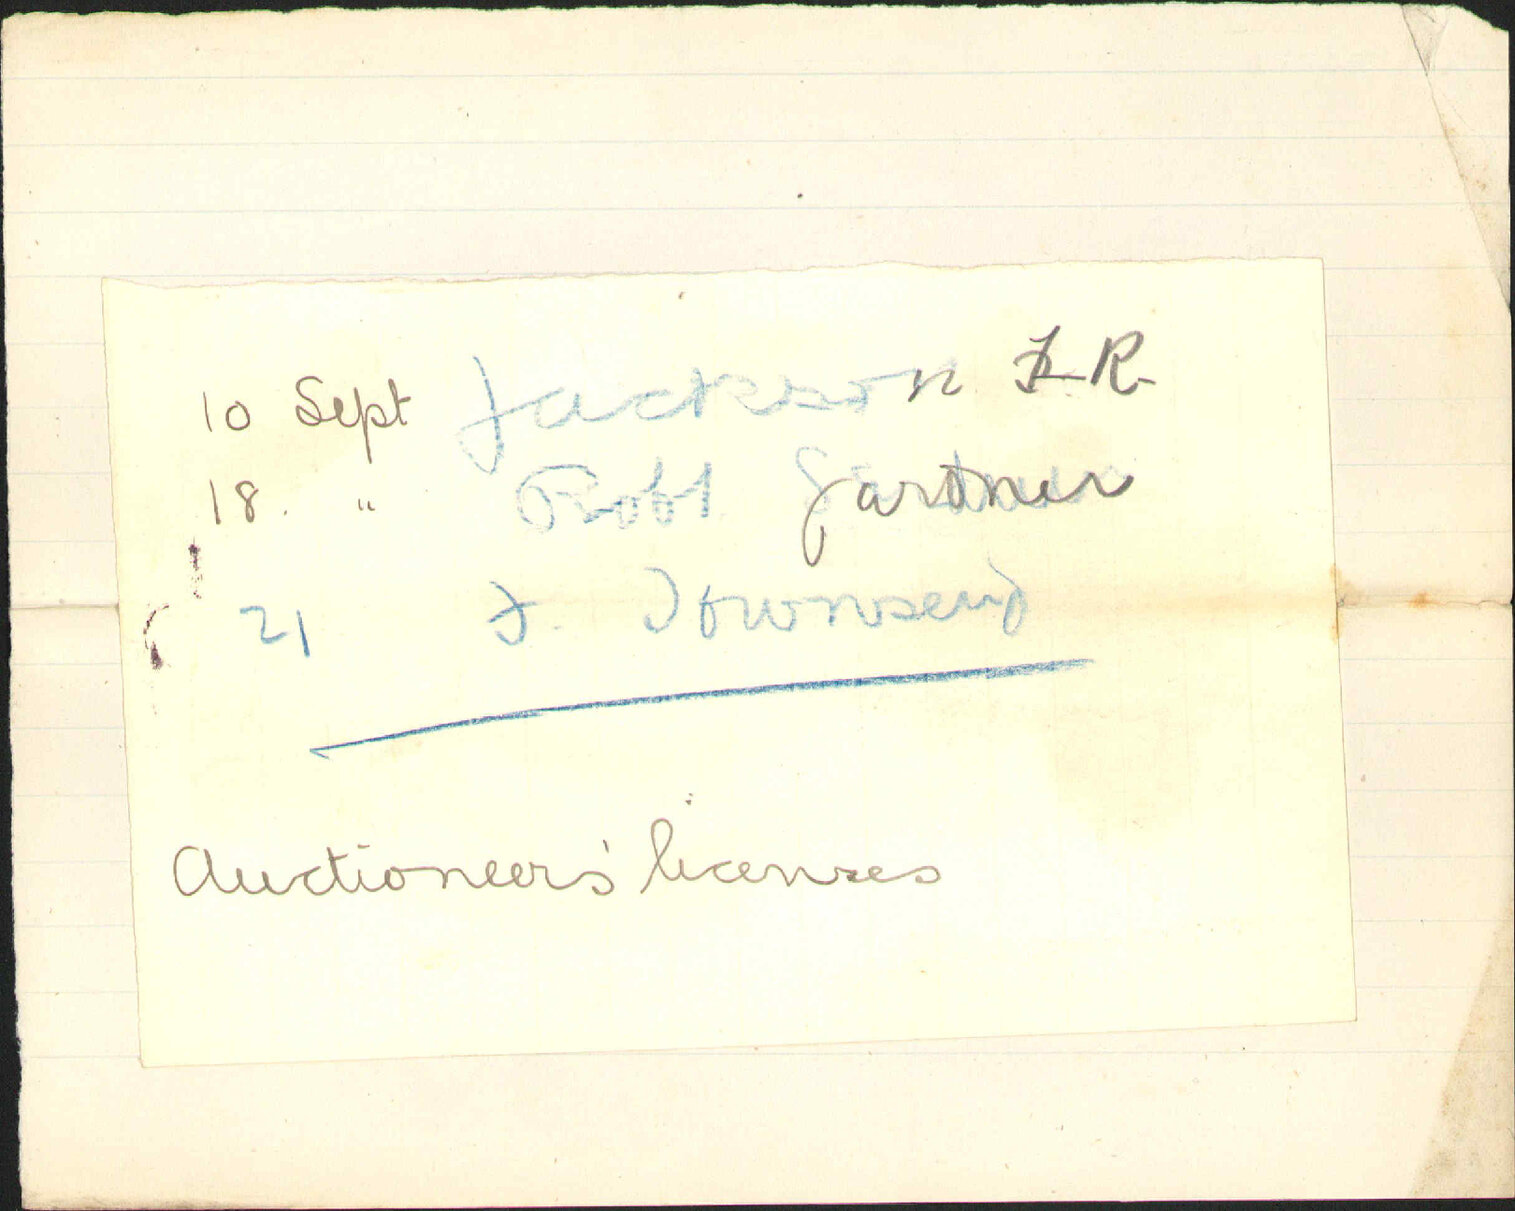 10 Sept Jackson F. R.
18. " Robt Gardner
21 F. Townsend
Auctioneers' licenses